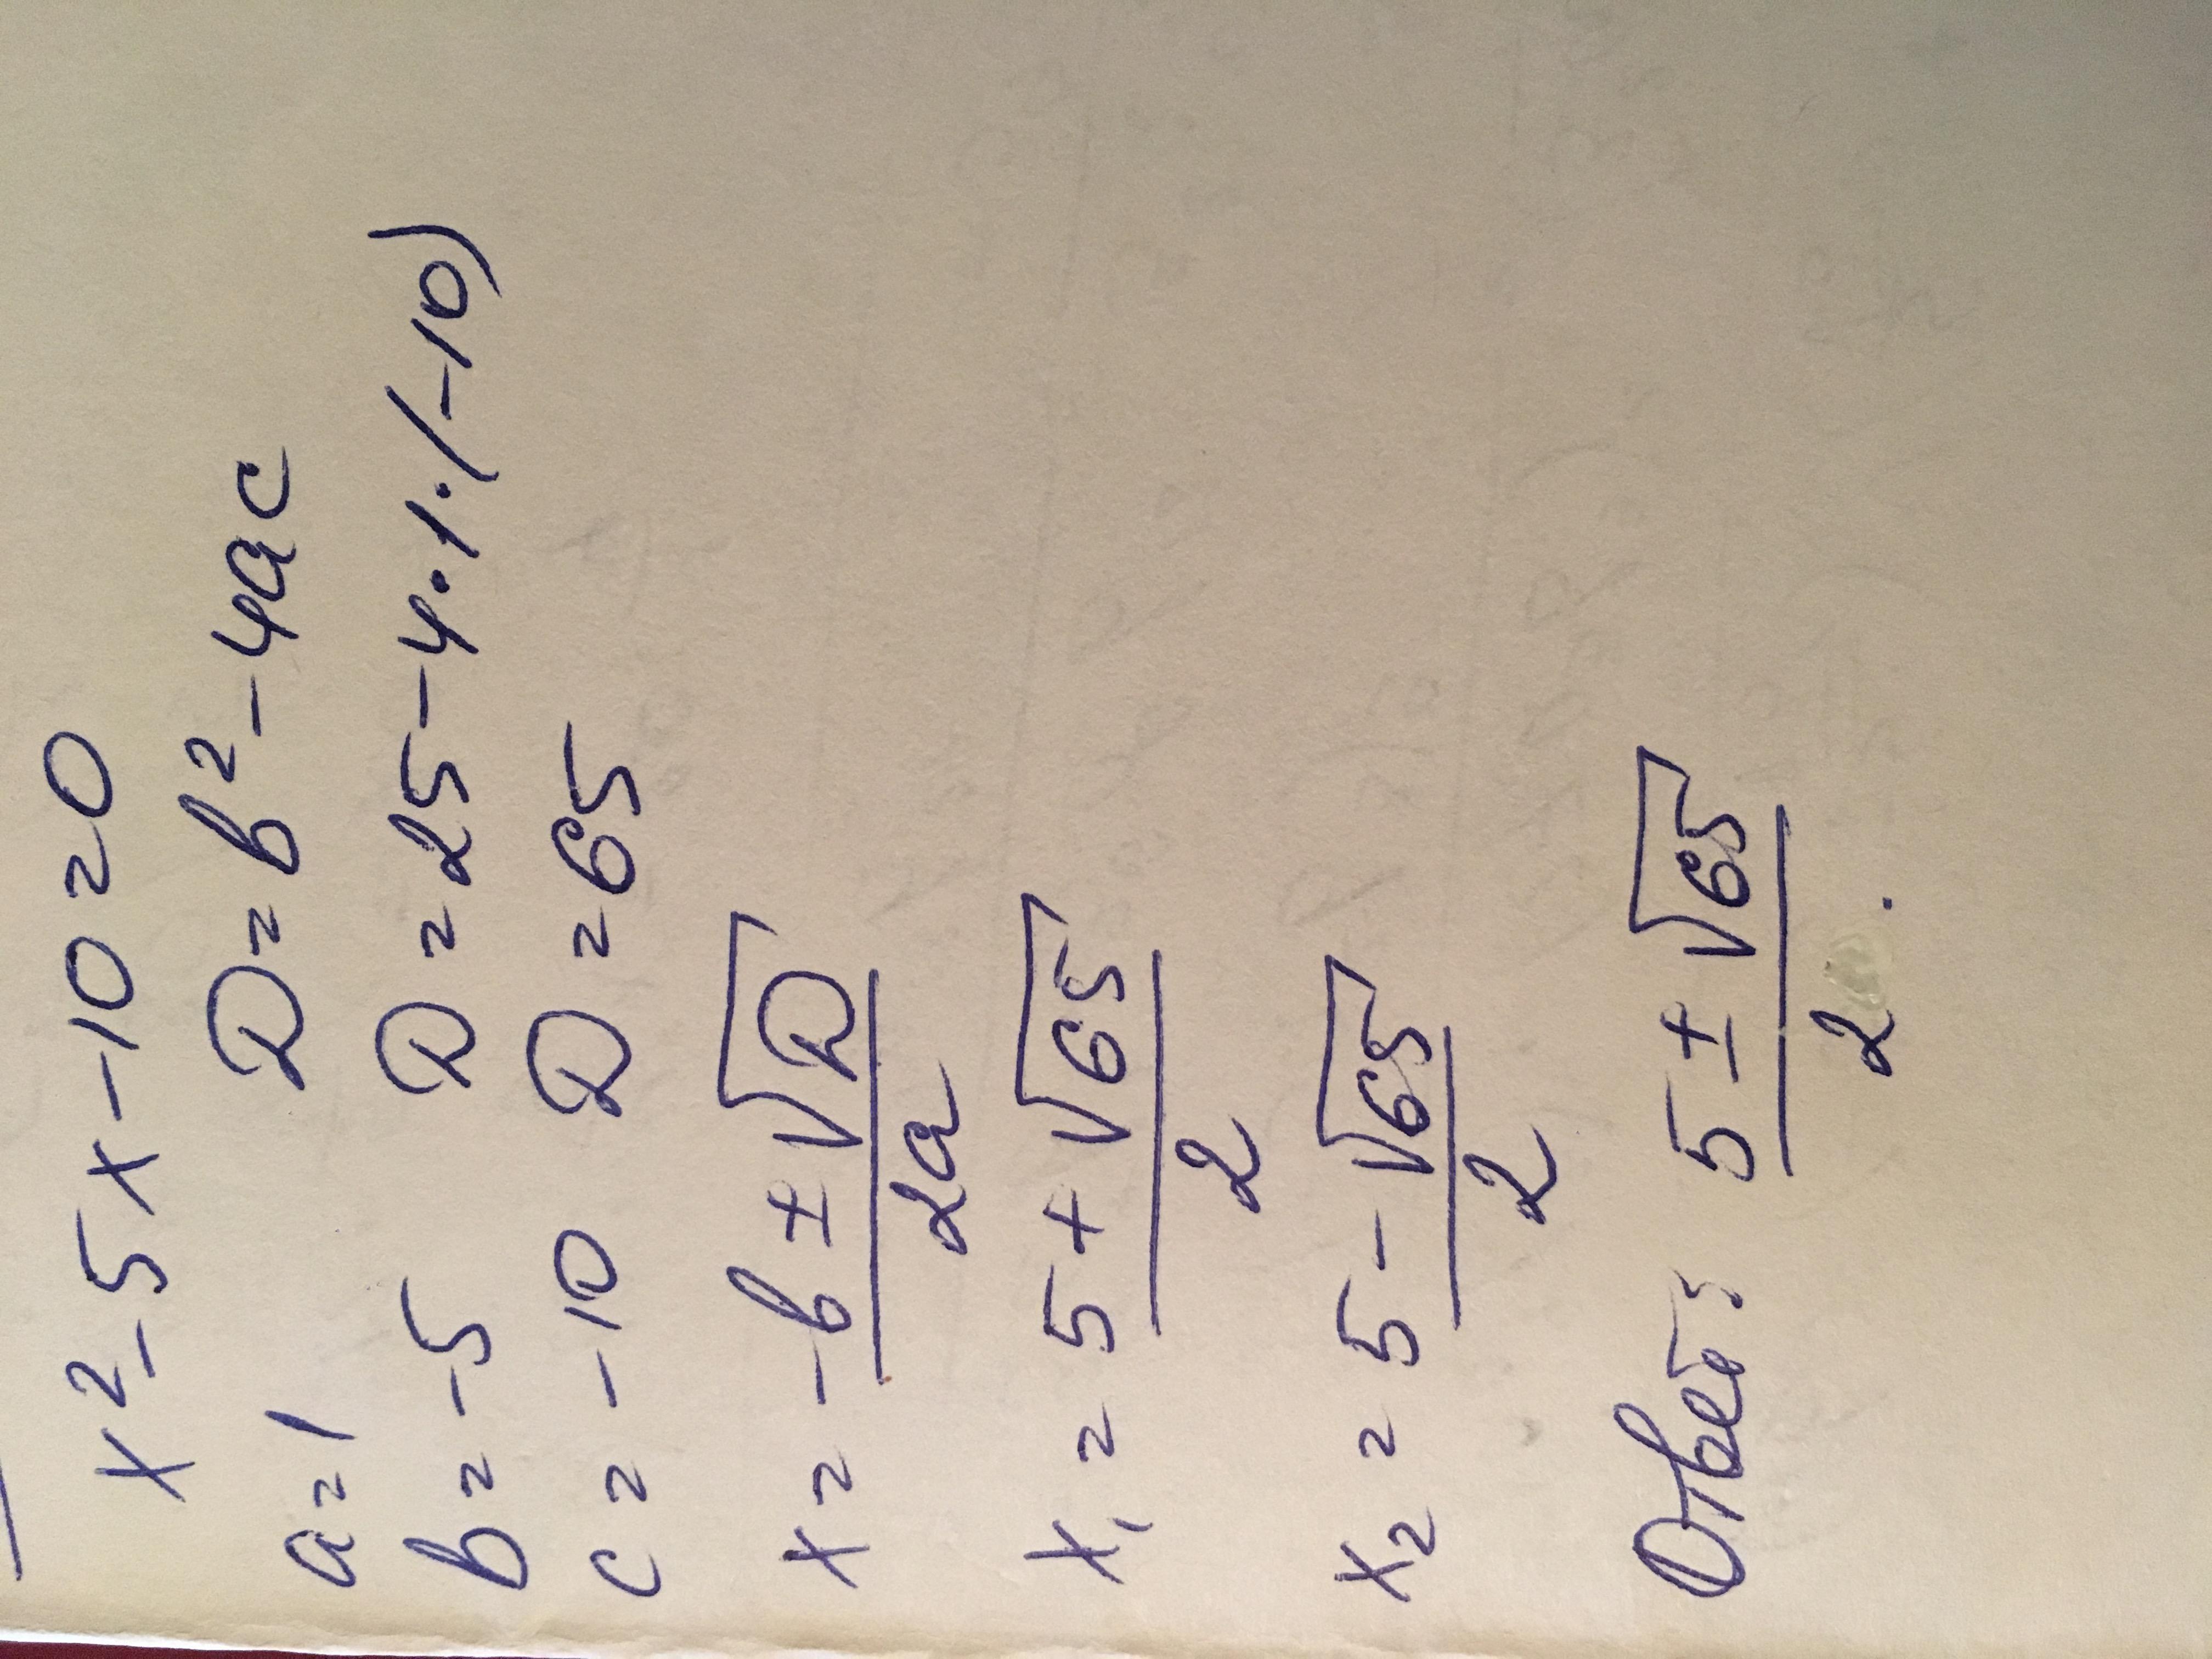 x² - 5x - 10 = 0
a = 1 D = b² - 4ac
b = -5 D = 25 - 4 · 1 · (-10)
c = -10 D = 65
x = -b ± √D / 2a
x₁ = 5 + √65 / 2
x₂ = 5 - √65 / 2
Ответ: 5 ± √65 / 2 .